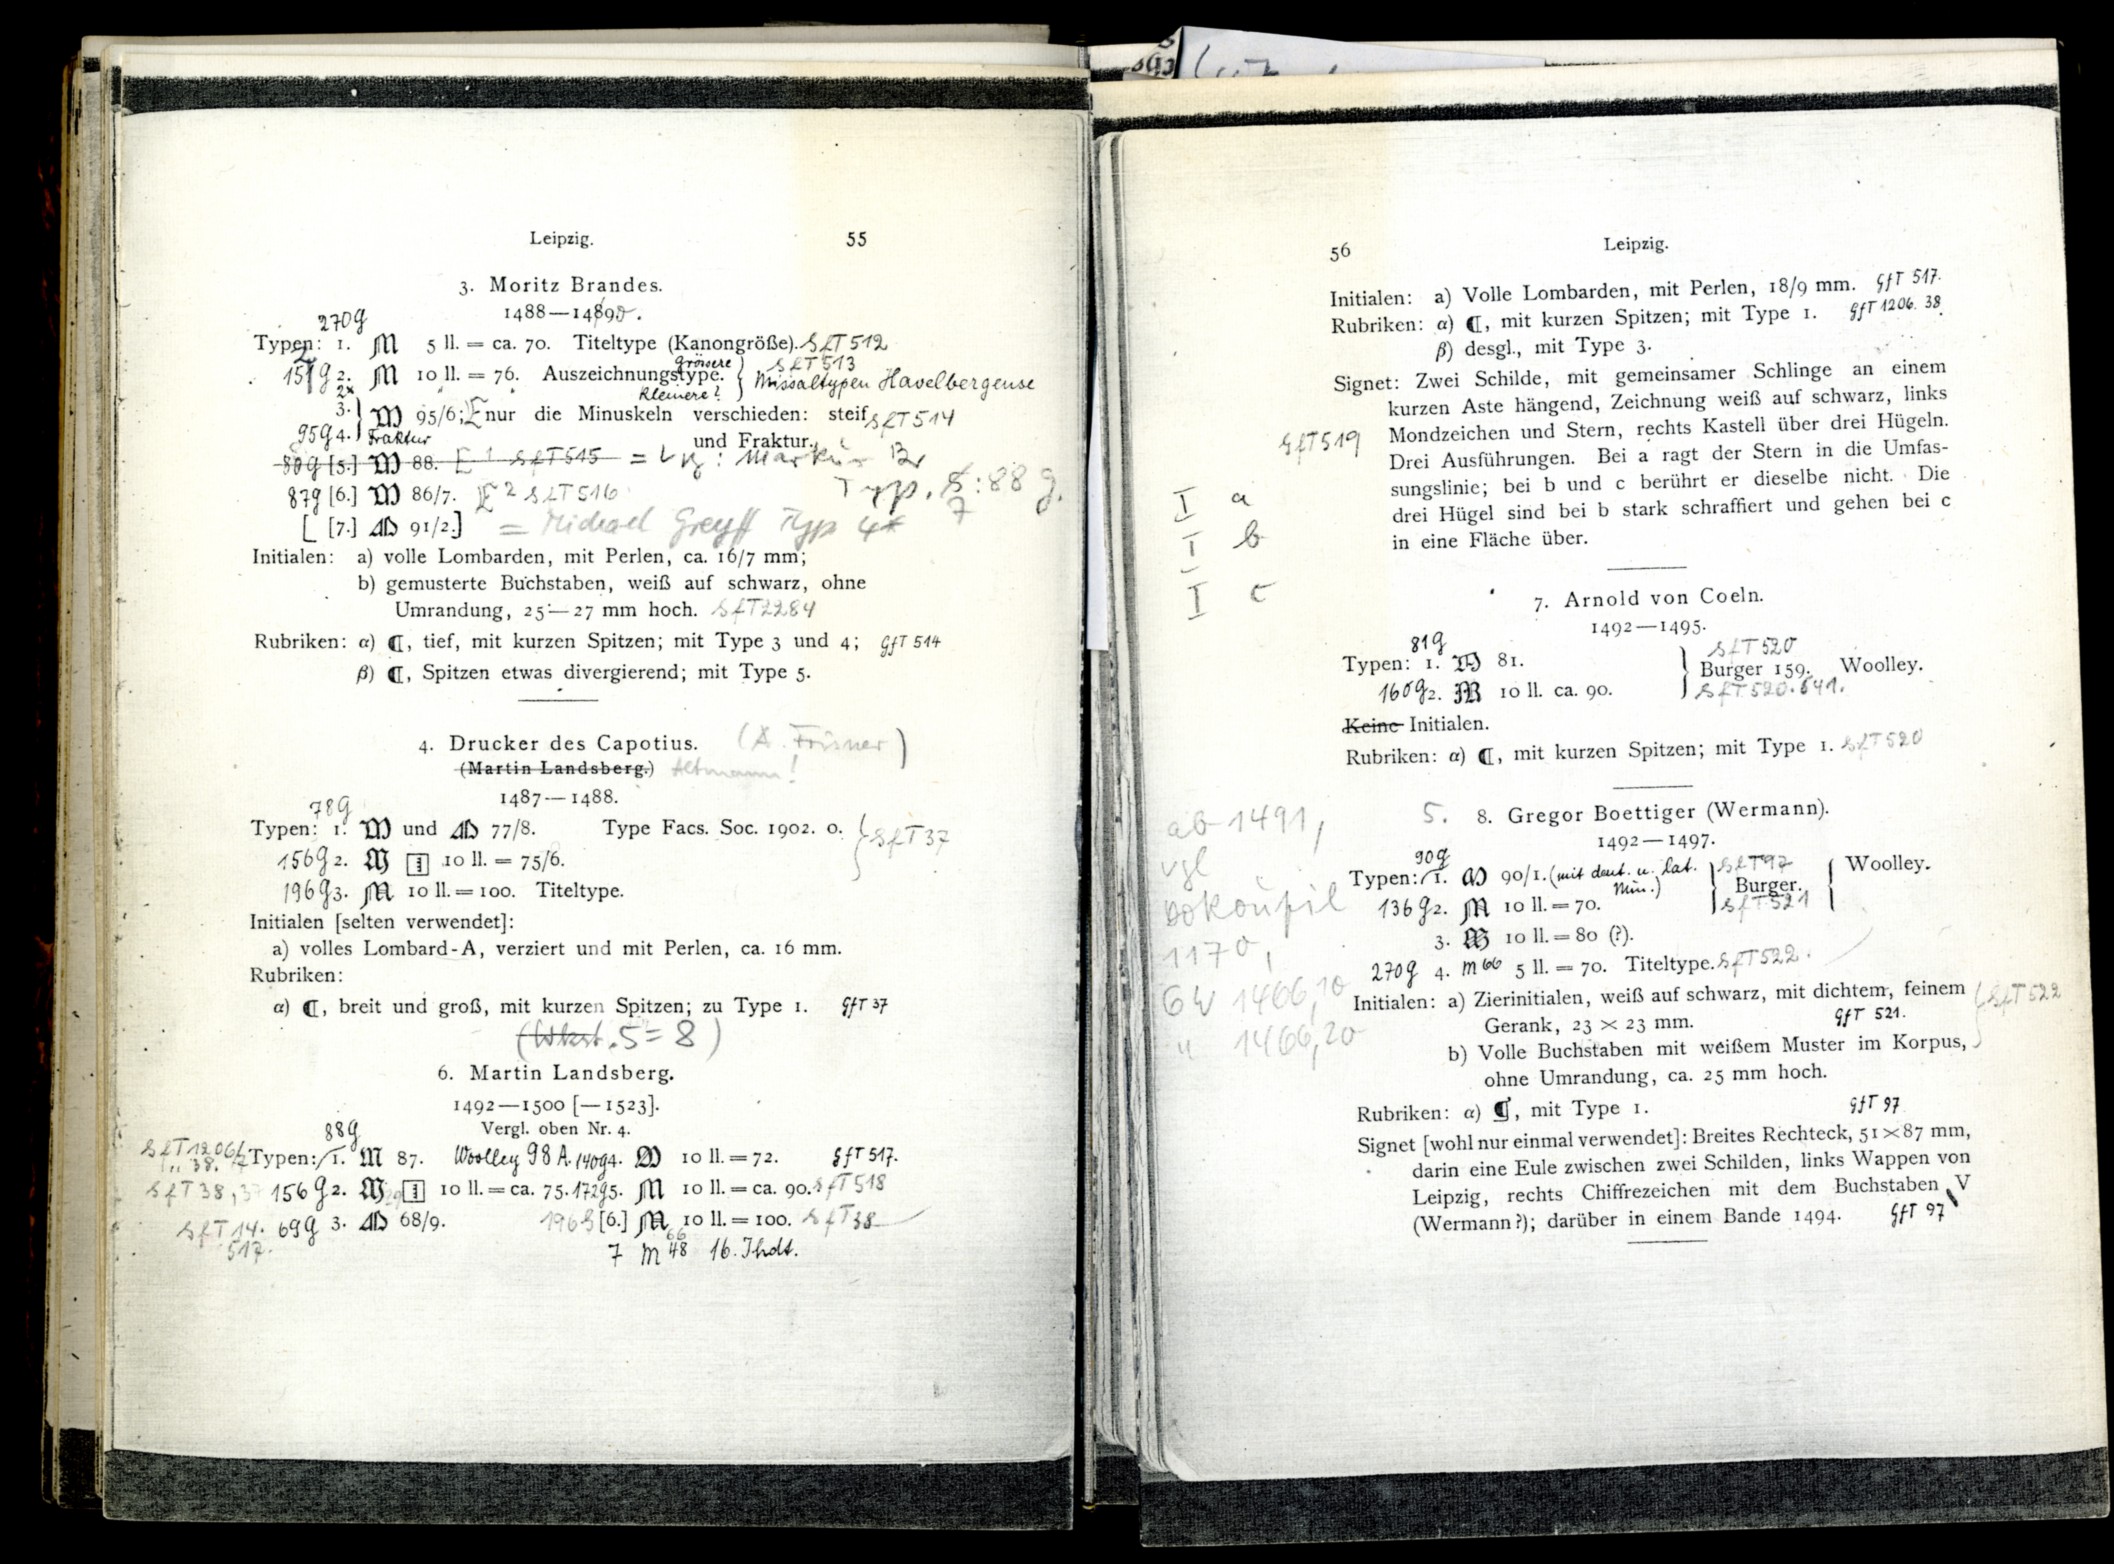 Leipzig. 55
3. Moritz Brandes.
1488—1489
270g
Typen: 1. M 5 ll. = ca. 70. Titeltype (Kanongröße). GfT 512
2. M 10 ll. = 76. Auszeichnungstype. grössere kleinere? } GfT 513 Missaltypen Havelbergense
3. } M 95/6; nur die Minuskeln verschieden: steif GfT 514
95g 4. } Fraktur und Fraktur.
80g [5.] M 88. GfT 515 = Markus Br
87g [6.] M 86/7. E² GfT 516 Typ. 7 : 88 g.
[ [7.] M 91/2.] = Michael Greyff Typ 4*
Initialen: a) volle Lombarden, mit Perlen, ca. 16/7 mm;
b) gemusterte Buchstaben, weiß auf schwarz, ohne
Umrandung, 25—27 mm hoch. GfT 2284
Rubriken: α) ¶, tief, mit kurzen Spitzen; mit Type 3 und 4; GfT 514
β) ¶, Spitzen etwas divergierend; mit Type 5.
4. Drucker des Capotius. (A. Frisner)
(Martin Landsberg.) Altmann!
1487—1488.
78g
Typen: 1. M und M 77/8. Type Facs. Soc. 1902. o. } GfT 37
156g 2. M 10 ll. = 75/6.
196g 3. M 10 ll. = 100. Titeltype.
Initialen [selten verwendet]:
a) volles Lombard-A, verziert und mit Perlen, ca. 16 mm.
Rubriken:
α) ¶, breit und groß, mit kurzen Spitzen; zu Type 1. GfT 37
5 = 8 )
6. Martin Landsberg.
1492—1500 [—1523].
Vergl. oben Nr. 4.
88g
GfT 1206 Typen: 1. M 87. Woolley 98 A. 140g 4. M 10 ll. = 72. GfT 517.
" 38.
GfT 38, 156g 2. M 10 ll. = ca. 75. 172g 5. M 10 ll. = ca. 90. GfT 518
GfT 14. 69g 3. M 68/9. 196g [6.] M 10 ll. = 100. GfT 38
517. 7 M 48 16. Jhdt.
56 Leipzig.
Initialen: a) Volle Lombarden, mit Perlen, 18/9 mm. GfT 517.
Rubriken: α) ¶, mit kurzen Spitzen; mit Type 1. GfT 1206. 38.
β) desgl., mit Type 3.
Signet: Zwei Schilde, mit gemeinsamer Schlinge an einem
kurzen Aste hängend, Zeichnung weiß auf schwarz, links
GfT 519 Mondzeichen und Stern, rechts Kastell über drei Hügeln.
Drei Ausführungen. Bei a ragt der Stern in die Umfas-
sungslinie; bei b und c berührt er dieselbe nicht. Die
I a drei Hügel sind bei b stark schraffiert und gehen bei c
I b in eine Fläche über.
I c
7. Arnold von Coeln.
1492—1495.
81g GfT 520
Typen: 1. M 81. } Burger 159. Woolley.
160g 2. M 10 ll. ca. 90. GfT 520. 541.
Keine Initialen.
Rubriken: α) ¶, mit kurzen Spitzen; mit Type 1. GfT 520
5. 8. Gregor Boettiger (Wermann).
1492—1497.
ab 1491,
vgl
Dokoupil
1170,
GW 1466,10
" 1466,20
90g
Typen: 1. M 90/1. (mit deut. u. lat. Min.) GfT 97 Burger. Woolley.
136g 2. M 10 ll. = 70. GfT 521
3. M 10 ll. = 80 (?).
270g 4. M 66 5 ll. = 70. Titeltype. GfT 522.
Initialen: a) Zierinitialen, weiß auf schwarz, mit dichtem, feinem } GfT 522
Gerank, 23 × 23 mm. GfT 521.
b) Volle Buchstaben mit weißem Muster im Korpus,
ohne Umrandung, ca. 25 mm hoch.
Rubriken: α) ¶, mit Type 1. GfT 97
Signet [wohl nur einmal verwendet]: Breites Rechteck, 51×87 mm,
darin eine Eule zwischen zwei Schilden, links Wappen von
Leipzig, rechts Chiffrezeichen mit dem Buchstaben V
(Wermann?); darüber in einem Bande 1494. GfT 97